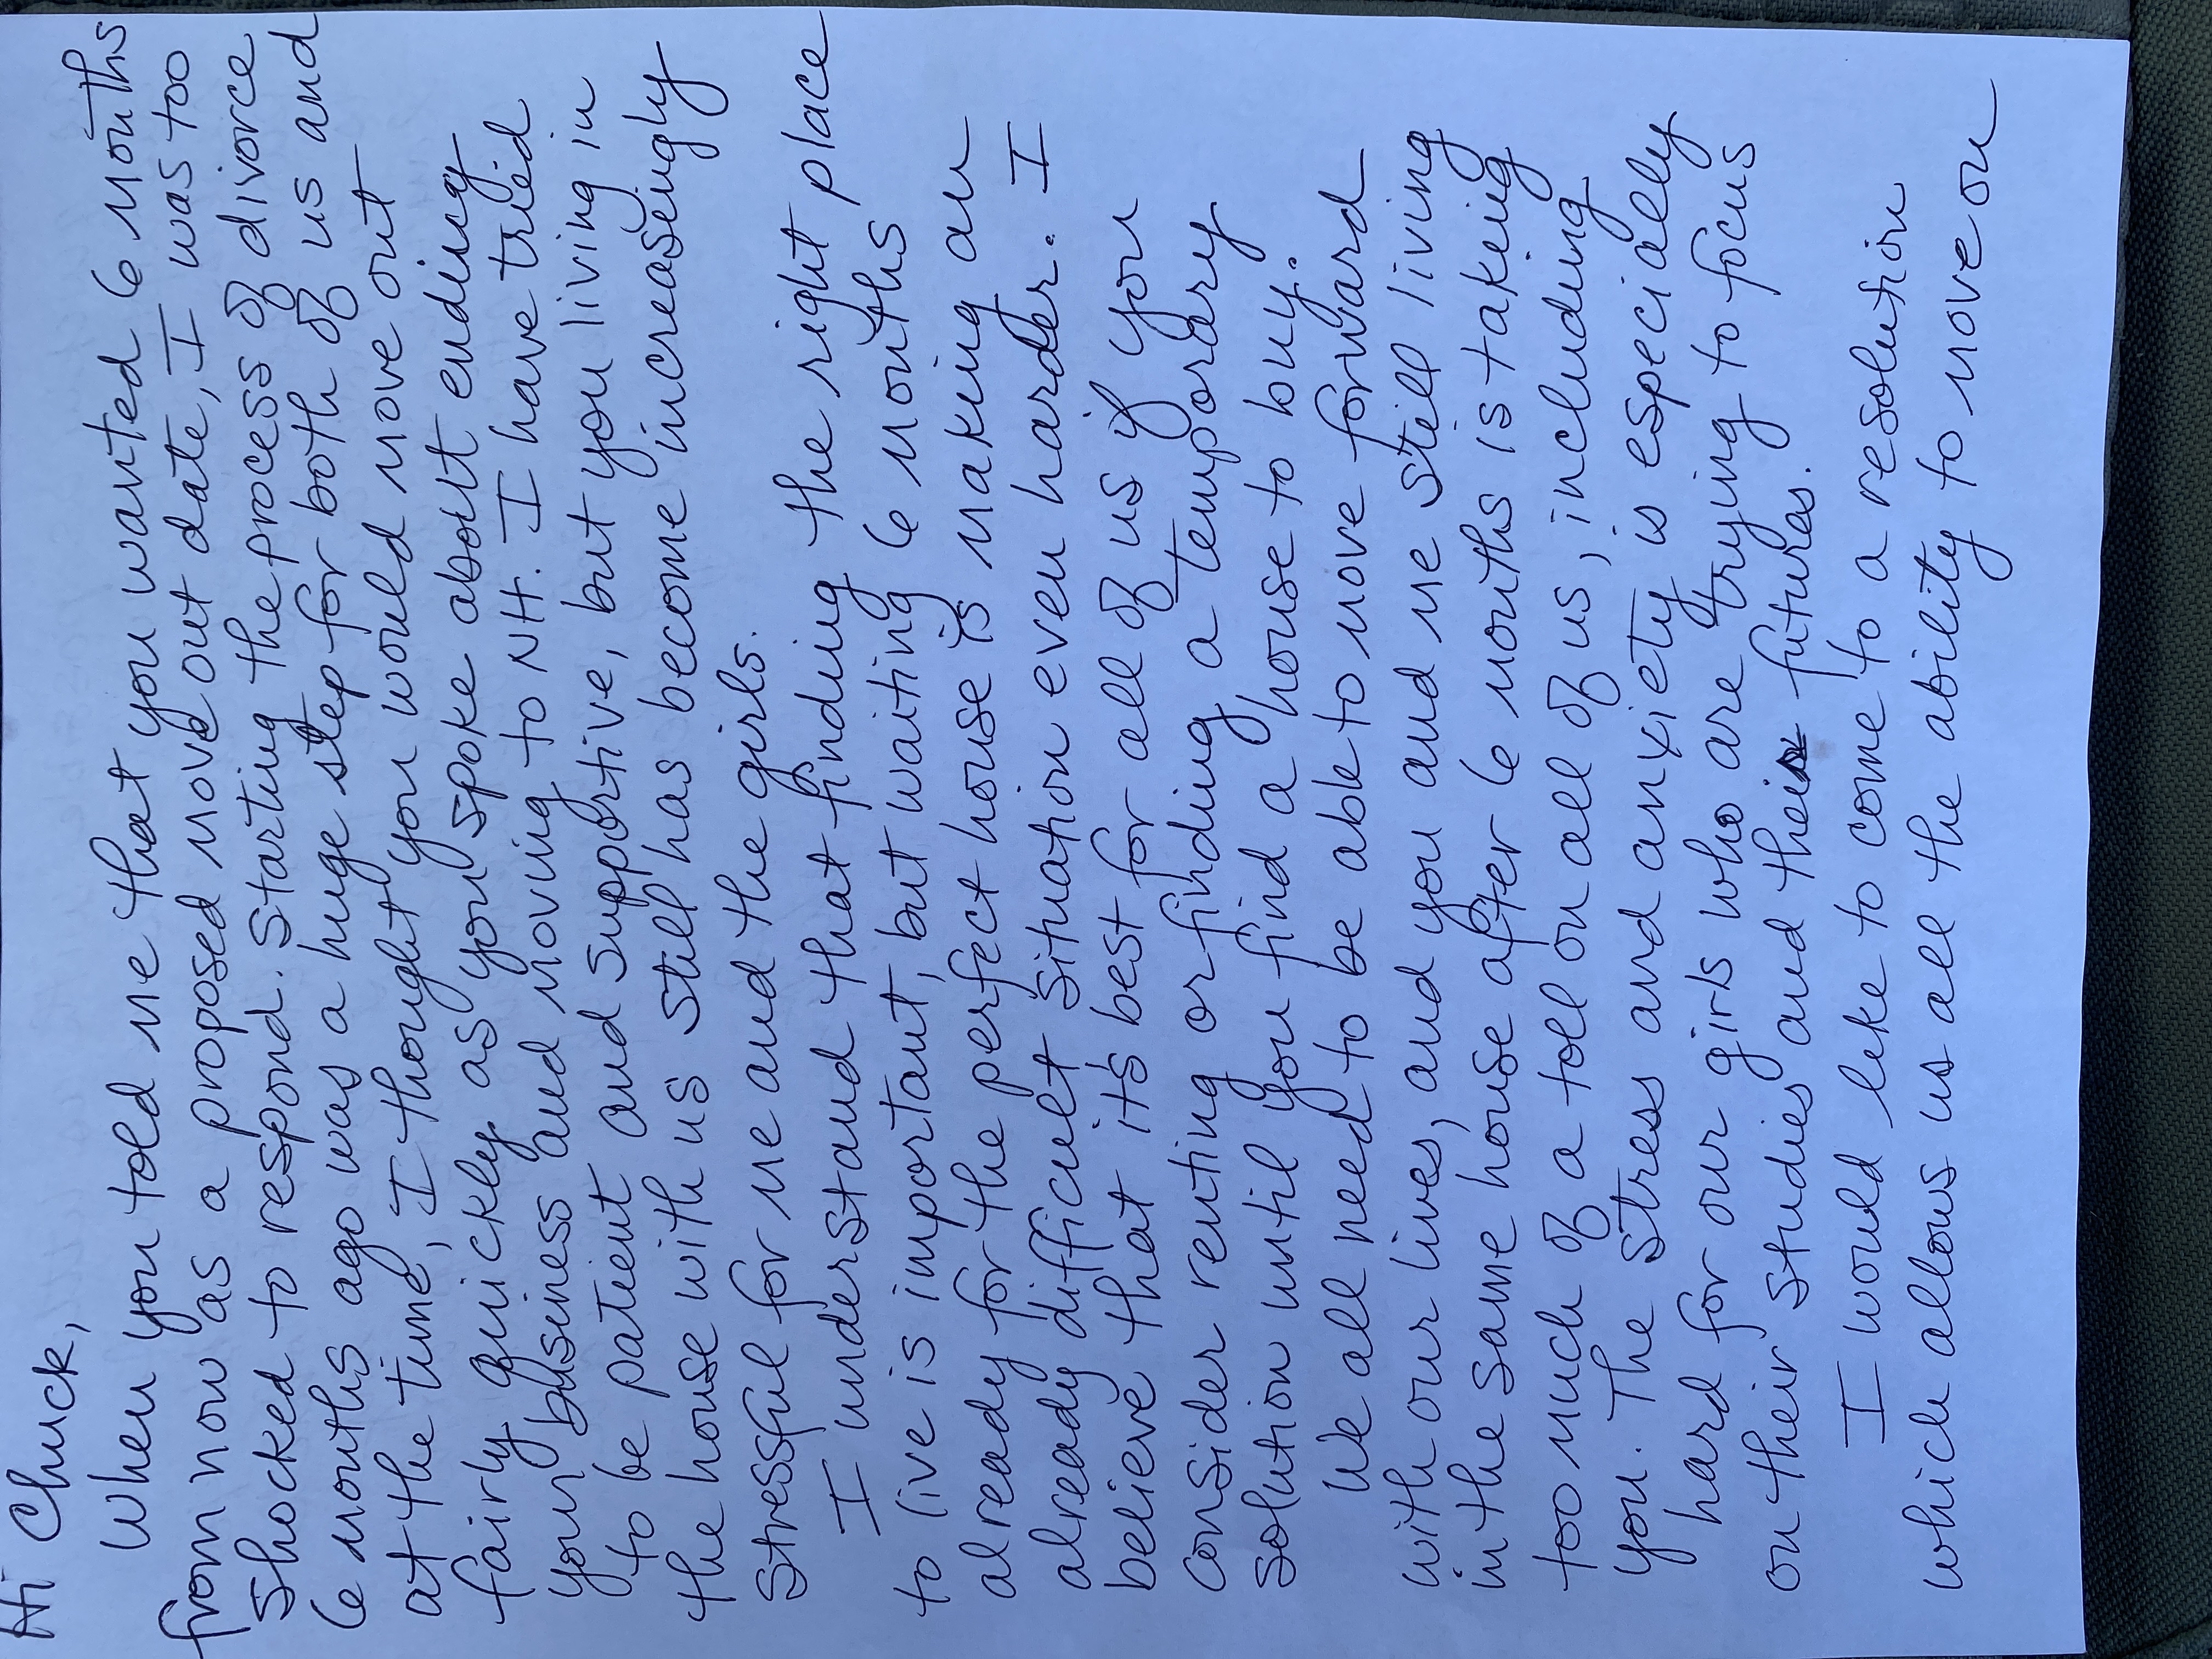 Hi Chuck,
When you told me that you wanted 6 months
from now as a proposed move out date, I was too
shocked to respond. Starting the process of divorce
6 months ago was a huge step for both of us and
at the time, I thought you would move out
fairly quickly as you spoke about ending
your business and moving to NH. I have tried
to be patient and supportive, but you living in
the house with us still has become increasingly
stressful for me and the girls.
I understand that finding the right place
to live is important, but waiting 6 months
already for the perfect house is making an
already difficult situation even harder. I
believe that it's best for all of us if you
consider renting or finding a temporary
solution until you find a house to buy.
We all need to be able to move forward
with our lives, and you and me still living
in the same house after 6 months is taking
too much of a toll on all of us, including
you. The stress and anxiety is especially
hard for our girls who are trying to focus
on their studies and their futures.
I would like to come to a resolution
which allows us all the ability to move on